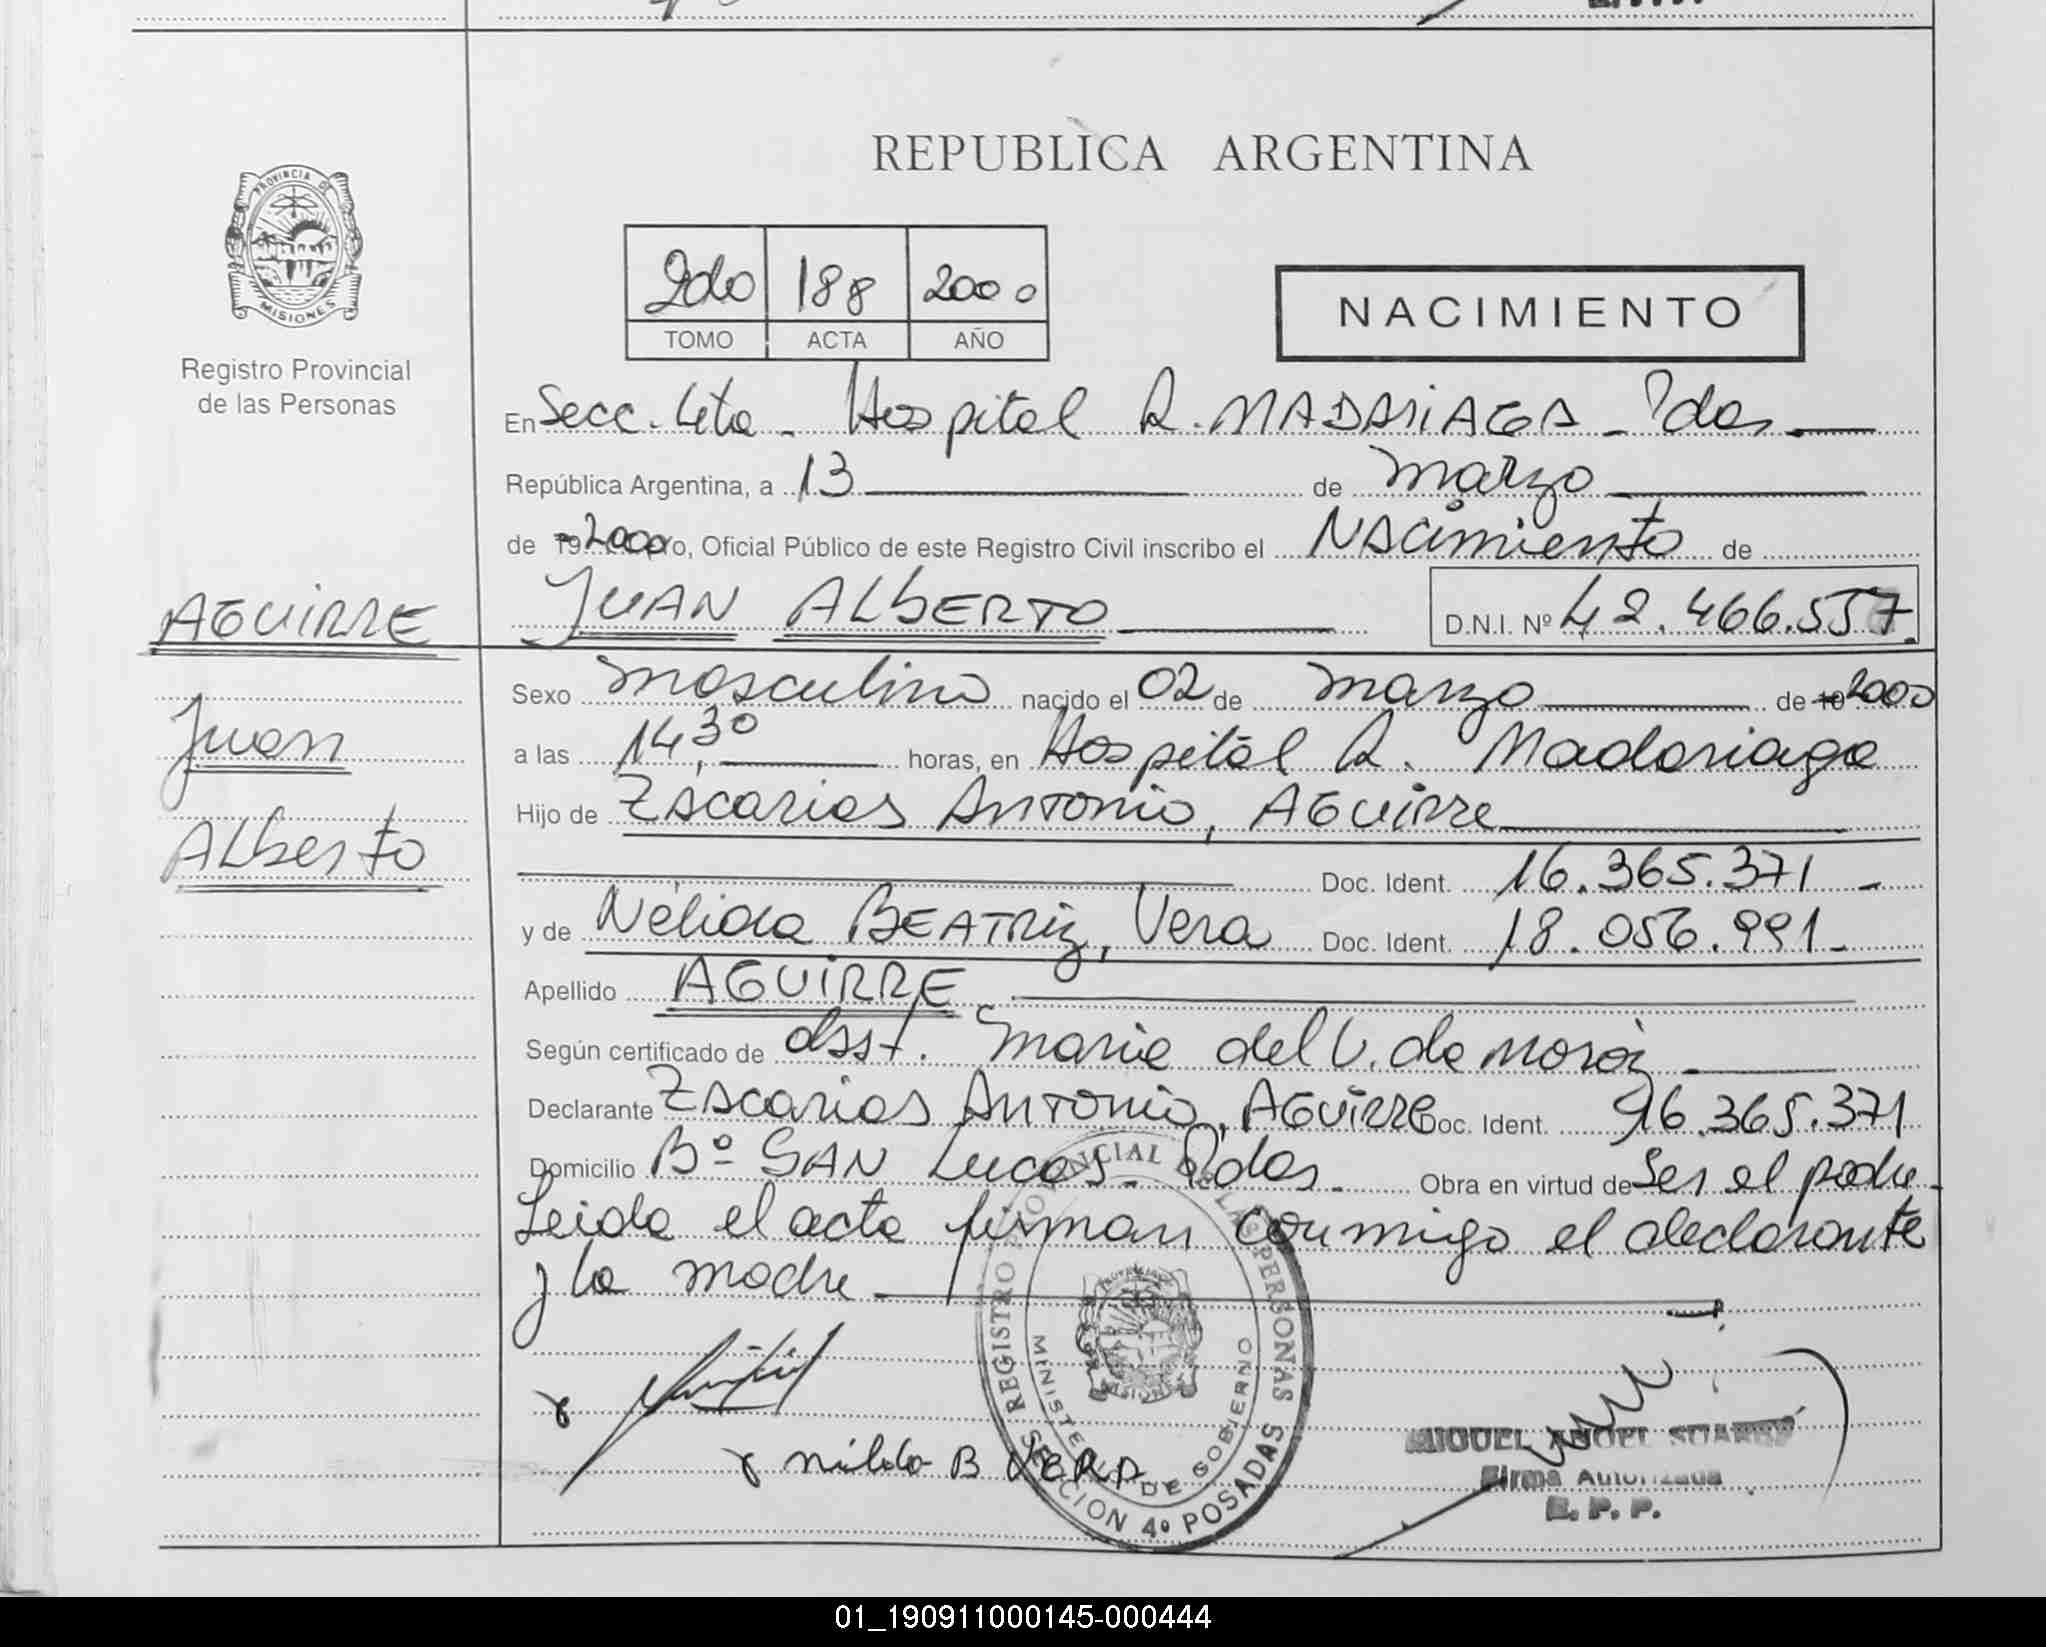 REPUBLICA ARGENTINA
PROVINCIA DE MISIONES
Registro Provincial
de las Personas
2do 188 2000
TOMO ACTA AÑO
NACIMIENTO
En Secc. 4ta - Hospital R. MADARIAGA - Pdas.
República Argentina, a 13 de Marzo
de 2000 yo, Oficial Público de este Registro Civil inscribo el Nacimiento de
AGUIRRE JUAN ALBERTO D.N.I. Nº 42.466.557.
Juan
Alberto
Sexo masculino nacido el 02 de Marzo de 2000
a las 14,30 horas, en Hospital R. Madariaga
Hijo de Antonio, AGUIRRE
Doc. Ident. 16.365.371 -
y de Nélida BEATRIZ, Vera Doc. Ident. 18.056.991-
Apellido AGUIRRE
Según certificado de obst. Maria del
Declarante Antonio, AGUIRRE Doc. Ident. 16.365.371
Domicilio Bº SAN Lucas - Pdas. Obra en virtud de Ser el padre-
Leida el acta firman conmigo el declarante
y la madre
B VERA
REGISTRO PROVINCIAL DE LAS PERSONAS
MINISTERIO DE GOBIERNO
SECCION 4º POSADAS
MIGUEL ANGEL SUAREZ
Firma Autorizada
E. P. P.
01_190911000145-000444